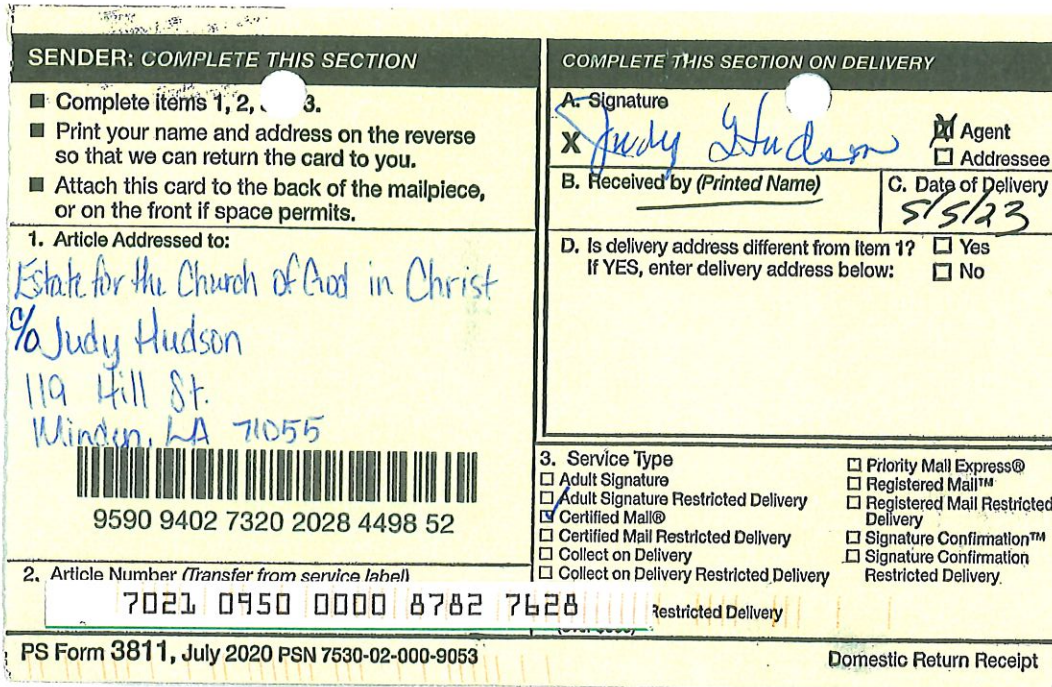 SENDER: COMPLETE THIS SECTION
■ Complete items 1, 2, 3.
■ Print your name and address on the reverse
so that we can return the card to you.
■ Attach this card to the back of the mailpiece,
or on the front if space permits.
1. Article Addressed to:
Estate for the Church of God in Christ
c/o Judy Hudson
119 Hill St.
Minden, LA 71055
9590 9402 7320 2028 4498 52
2. Article Number (Transfer from service label)
7021 0950 0000 8782 7628
COMPLETE THIS SECTION ON DELIVERY
A. Signature
X Judy Hudson
☒ Agent
☐ Addressee
B. Received by (Printed Name)
C. Date of Delivery
5/5/23
D. Is delivery address different from item 1? ☐ Yes
If YES, enter delivery address below: ☐ No
3. Service Type
☐ Adult Signature
☐ Adult Signature Restricted Delivery
☑ Certified Mail®
☐ Certified Mail Restricted Delivery
☐ Collect on Delivery
☐ Collect on Delivery Restricted Delivery
Restricted Delivery
☐ Priority Mail Express®
☐ Registered Mail™
☐ Registered Mail Restricted
Delivery
☐ Signature Confirmation™
☐ Signature Confirmation
Restricted Delivery
PS Form 3811, July 2020 PSN 7530-02-000-9053
Domestic Return Receipt